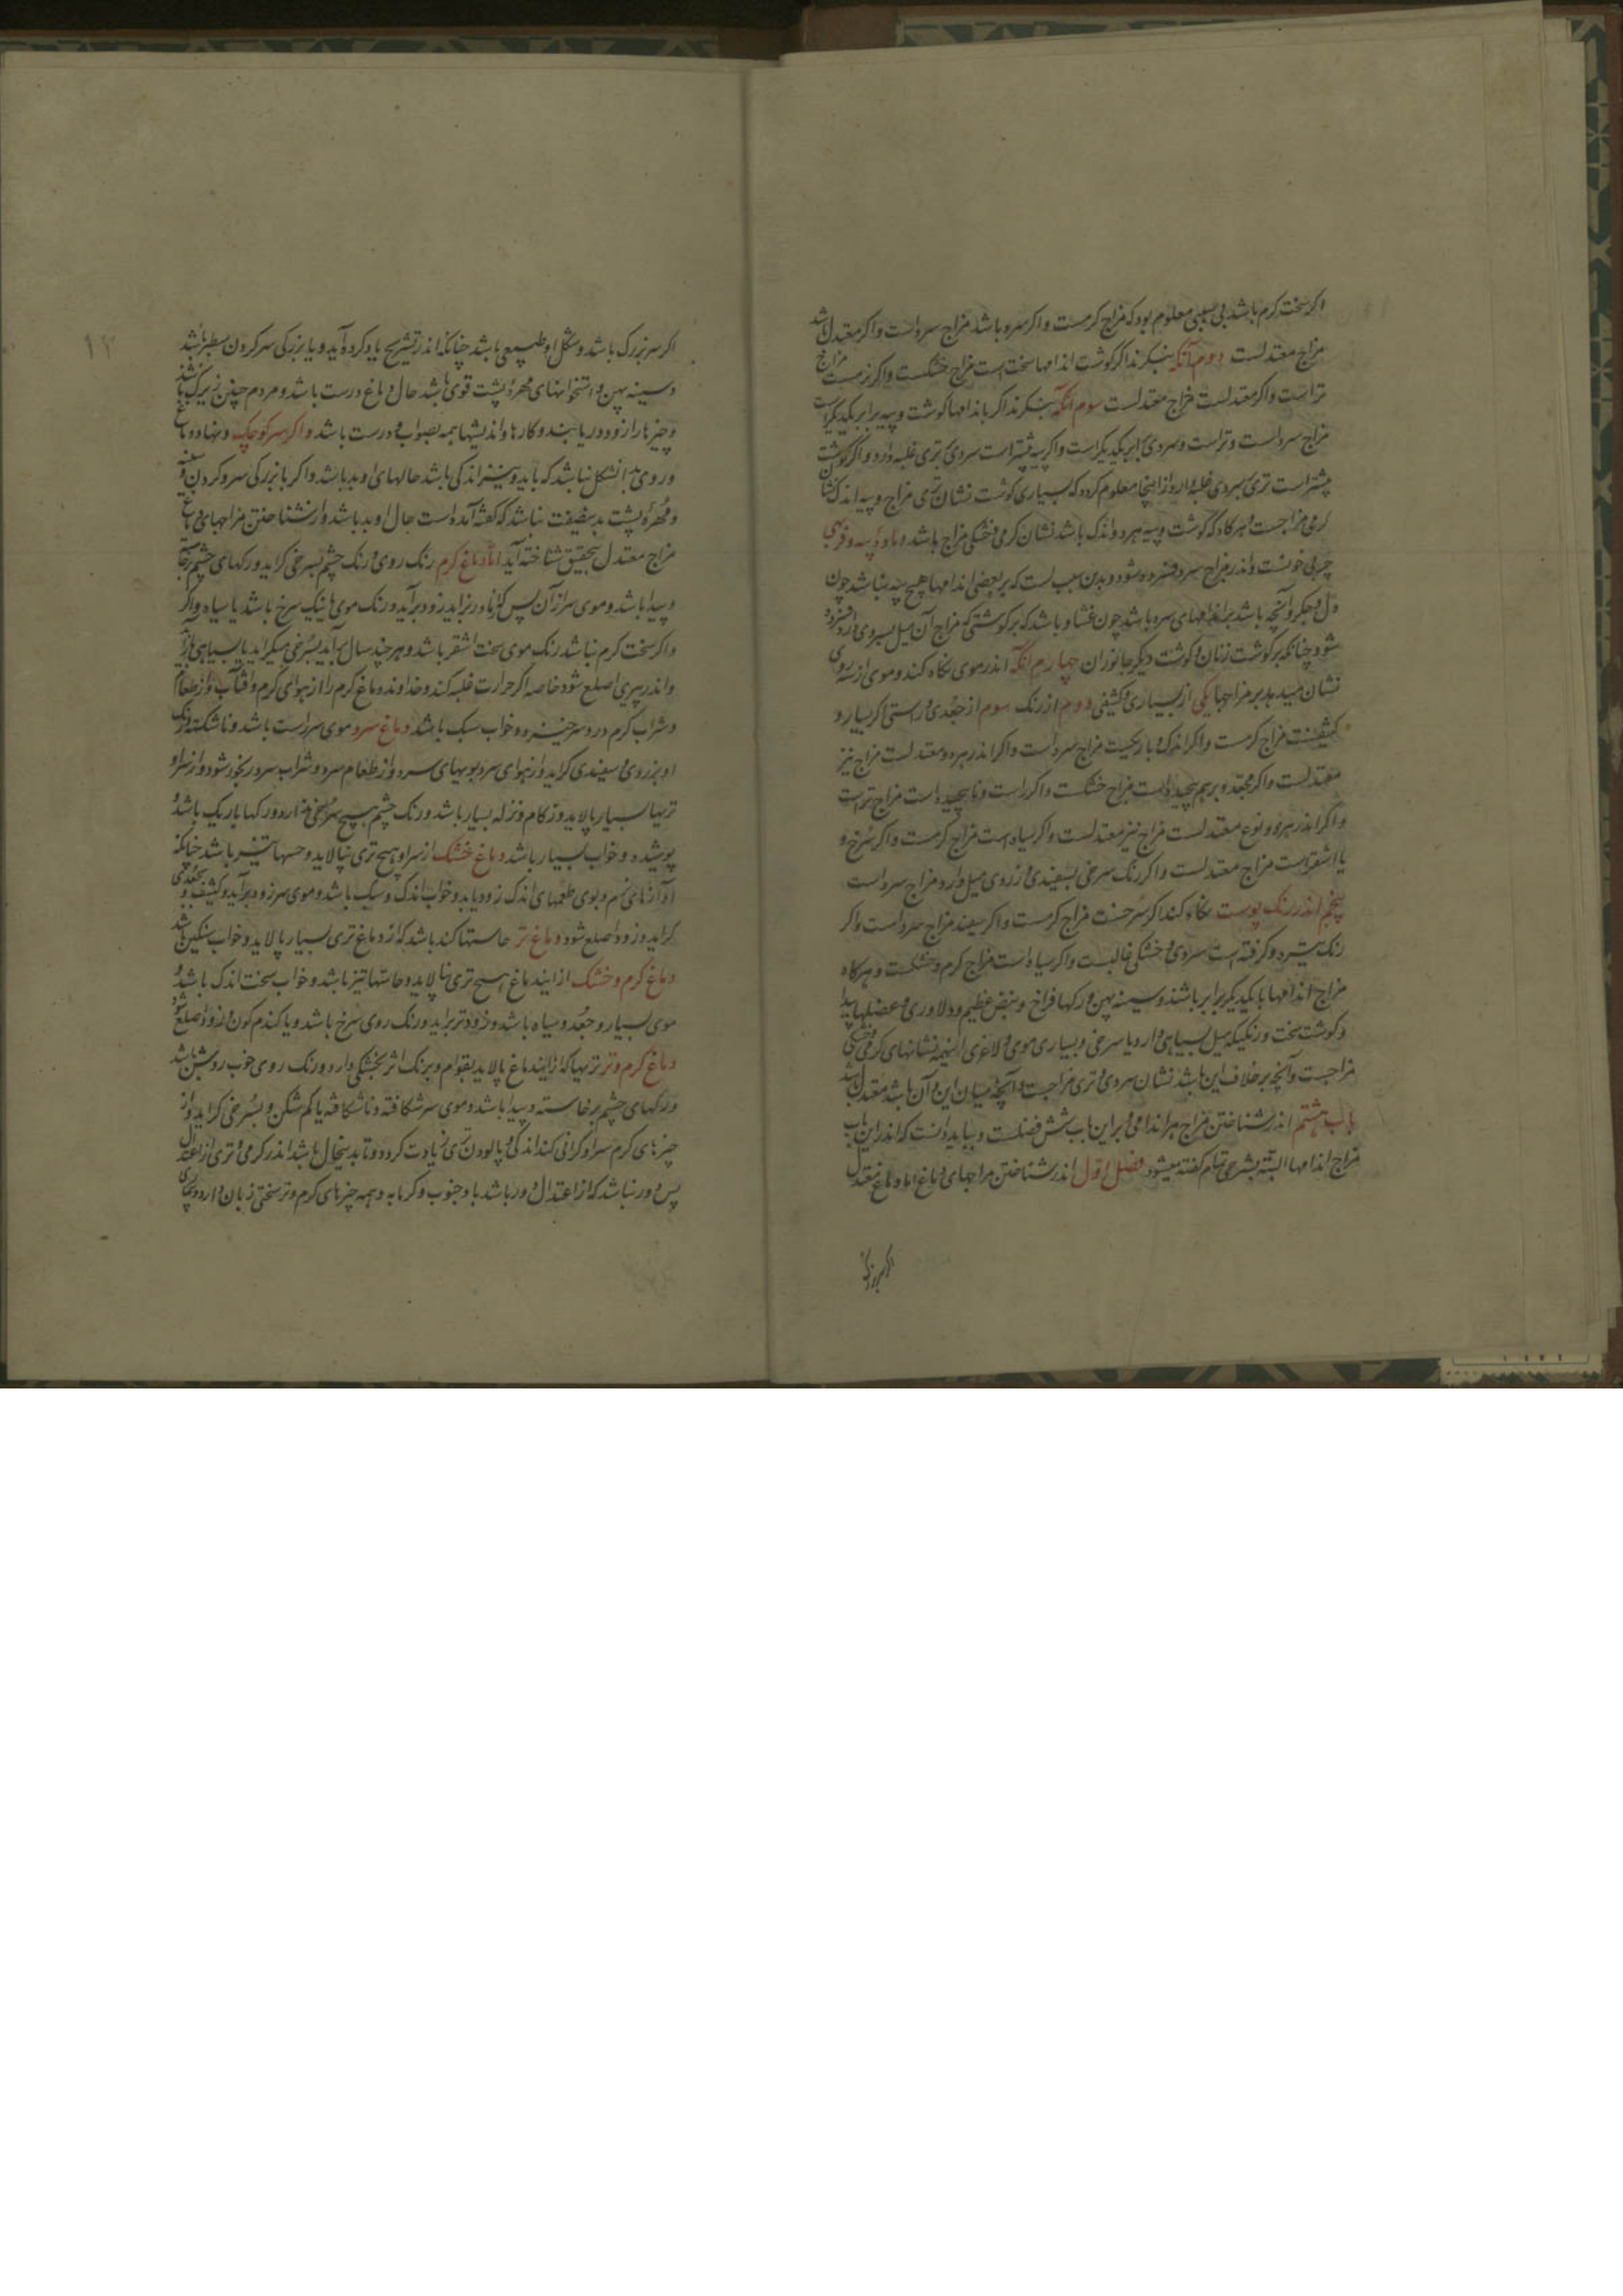 اگر سخت گرم باشد بی سببی معلوم بود که مزاج گرمست و اگر سرد باشد مزاج سردست و اگر معتدل باشد
مزاج معتدلست دوم آنکه بنگرند اگر گوشت اندامها سخت است مزاج خشکست و اگر نرمست مزاج
تراست و اگر معتدلست مزاج معتدلست سوم آنکه بنگرند اگر باندامها گوشت و پیه برابر یکدیگر است
مزاج سرد است و تر است و سردی برابر یکدیگر است و اگر پیه بیشتر است سردی بر تری غلبه دارد و اگر گوشت
بیشتر است تری بر سردی غلبه دارد و از اینجا معلوم گردد که بسیاری گوشت نشان تری مزاج و پیه اندک نشان
گرمی مزاجست و هرگاه که گوشت و پیه هر دو اندک باشد نشان گرمی و خشکی مزاج باشد و مادۀ پیه و فربهی
چربی خونست و اندر مزاج سرد فسرده شود و بدین سبب است که بر بعضی اندامها هیچ پیه نباشد چون
دل و جگر و آنچه باشد بر اندامهای سرد باشد چون غشاء و باشد که بر گوشتی که مزاج آن میل بسردی دارد فسرده
شود چنانکه بر گوشت زنان و گوشت دیگر جانوران چهارم آنکه اندر موی نگاه کنند و موی از سه روی
نشان میدهد بر مزاجها یکی از بسیاری و کثیفی دوم از رنگ سوم از جعدی و راستی اگر بسیار و
کثیفست مزاج گرمست و اگر اندک و باریکست مزاج سرد است و اگر اندر هر دو معتدلست مزاج نیز
معتدلست و اگر مجعد و برهم پیچیده است مزاج خشکست و اگر راست و ناپیچیده است مزاج تر است
و اگر اندر هر دو نوع معتدلست مزاج نیز معتدلست و اگر سیاه است مزاج گرمست و اگر سرخ و
یا اشقر است مزاج معتدلست و اگر رنگ سرخی بسفیدی و زردی میل دارد مزاج سرد است
پنجم اندر رنگ پوست نگاه کنند اگر سرخست مزاج گرمست و اگر سفید مزاج سرد است و اگر
رنگ تیره و گرفته است سردی و خشکی غالبست و اگر سیاه است مزاج گرم و خشکست و هرگاه
مزاج اندامها با یکدیگر برابر باشند و سینه پهن و رگها فراخ و نبض عظیم و دلاوری و عضلها پیدا
و گوشت سخت و رنگی که میل بسیاهی دارد یا سرخی و بسیاری موی و لاغری اینهمه نشانهای گرمی و خشکی
مزاجست و آنچه بر خلاف این باشد نشان سردی و تری مزاجست و آنچه میان این و آن باشد معتدل باشد
باب هشتم اندر شناختن مزاج هر اندامی و بر این باب شش فصلست و بباید دانست که اندر این باب
مزاج اندامها البته بشرحی تمام گفته میشود فصل اول اندر شناختن مزاجهای دماغ اما دماغ معتدل
اگر سر بزرگ
۱۲
اگر سر بزرگ باشد و شکل او طبیعی باشد چنانکه اندر تشریح یاد کرده آید و با بزرگی سر گردن سطبر باشد
و سینه پهن و استخوانهای مهرۀ پشت قوی باشد حال دماغ درست باشد و مردم چنین زیرک باشند
و چیزها را زود دریابند و کارها و اندیشها همه بصواب و درست باشد و اگر سر کوچک و نهاد دماغ
و روی بدان شکل نباشد که باید و نیز اندکی باشد حالهای او بد باشد و اگر با بزرگی سر و گردن
و مهرۀ پشت بدین صفت نباشد که گفته آمده است حال او بد باشد و از شناختن مزاجهای دماغ
مزاج معتدل بتحقیق شناخته آید اما دماغ گرم رنگ روی و رنگ چشم بسرخی گراید و رگهای چشم برخاسته
و پیدا باشد و موی سر از آن پس که از مادر بزاید زود برآید و رنگ موی نیک سرخ باشد یا سیاه و اگر
و اگر سخت گرم نباشد رنگ موی سخت اشقر باشد و هر چند سال برآید بسرخی میگراید یا بسیاهی
و اندر پیری اصلع شود خاصه اگر حرارت غلبه کند و خداوند دماغ گرم را از هوای گرم و آفتاب و از طعام
و شراب گرم درد سر خیزد و خواب سبک باشد دماغ سرد موی سر راست باشد و ناشکسته و رنگ
او بزردی و سفیدی گراید و از هوای سرد و بویهای سرد و از طعام سرد و شراب سرد رنجور شود و از سر او
تریها بسیار پالاید و زکام و نزله بسیار باشد و رنگ چشم هیچ سرخی ندارد و رگها باریک باشد و
پوشیده و خواب بسیار باشد دماغ خشک از سر او هیچ تری نپالاید و حسها تیز باشد چنانکه
آوازهای نرم و بوی و طعمهای اندک زود یابد و خواب اندک و سبک باشد و موی سر زود برآید و کثیف بود و بجعدی
گراید و زود اصلع شود دماغ تر حاستها کند باشد که از دماغ تری بسیار پالاید و خواب سنگین باشد
دماغ گرم و خشک از این دماغ هیچ تری نپالاید و حاستها تیز باشد و خواب سخت اندک باشد و
موی بسیار و جعد و سیاه باشد و زودتر براید و رنگ روی سرخ باشد و یا گندم گون و زود اصلع شود
دماغ گرم و تر تریها که از این دماغ پالاید بقوام و برنگ اثر بختگی دارد و رنگ روی خوب و روشن باشد
و رگهای چشم برخاسته و پیدا باشد و موی سر شکافته و ناشکافته یا کم شکن و بسرخی گراید و از
چیزهای گرم سر او گرانی کند اندکی و پالودن تری زیادت گردد و تا بدینحال باشد اندر گرمی و تری از اعتدال
پس دور نباشد که از اعتدال دور باشد باد جنوب و گرمابه و همه چیزهای گرم و تر سخت زیان دارد و بجای